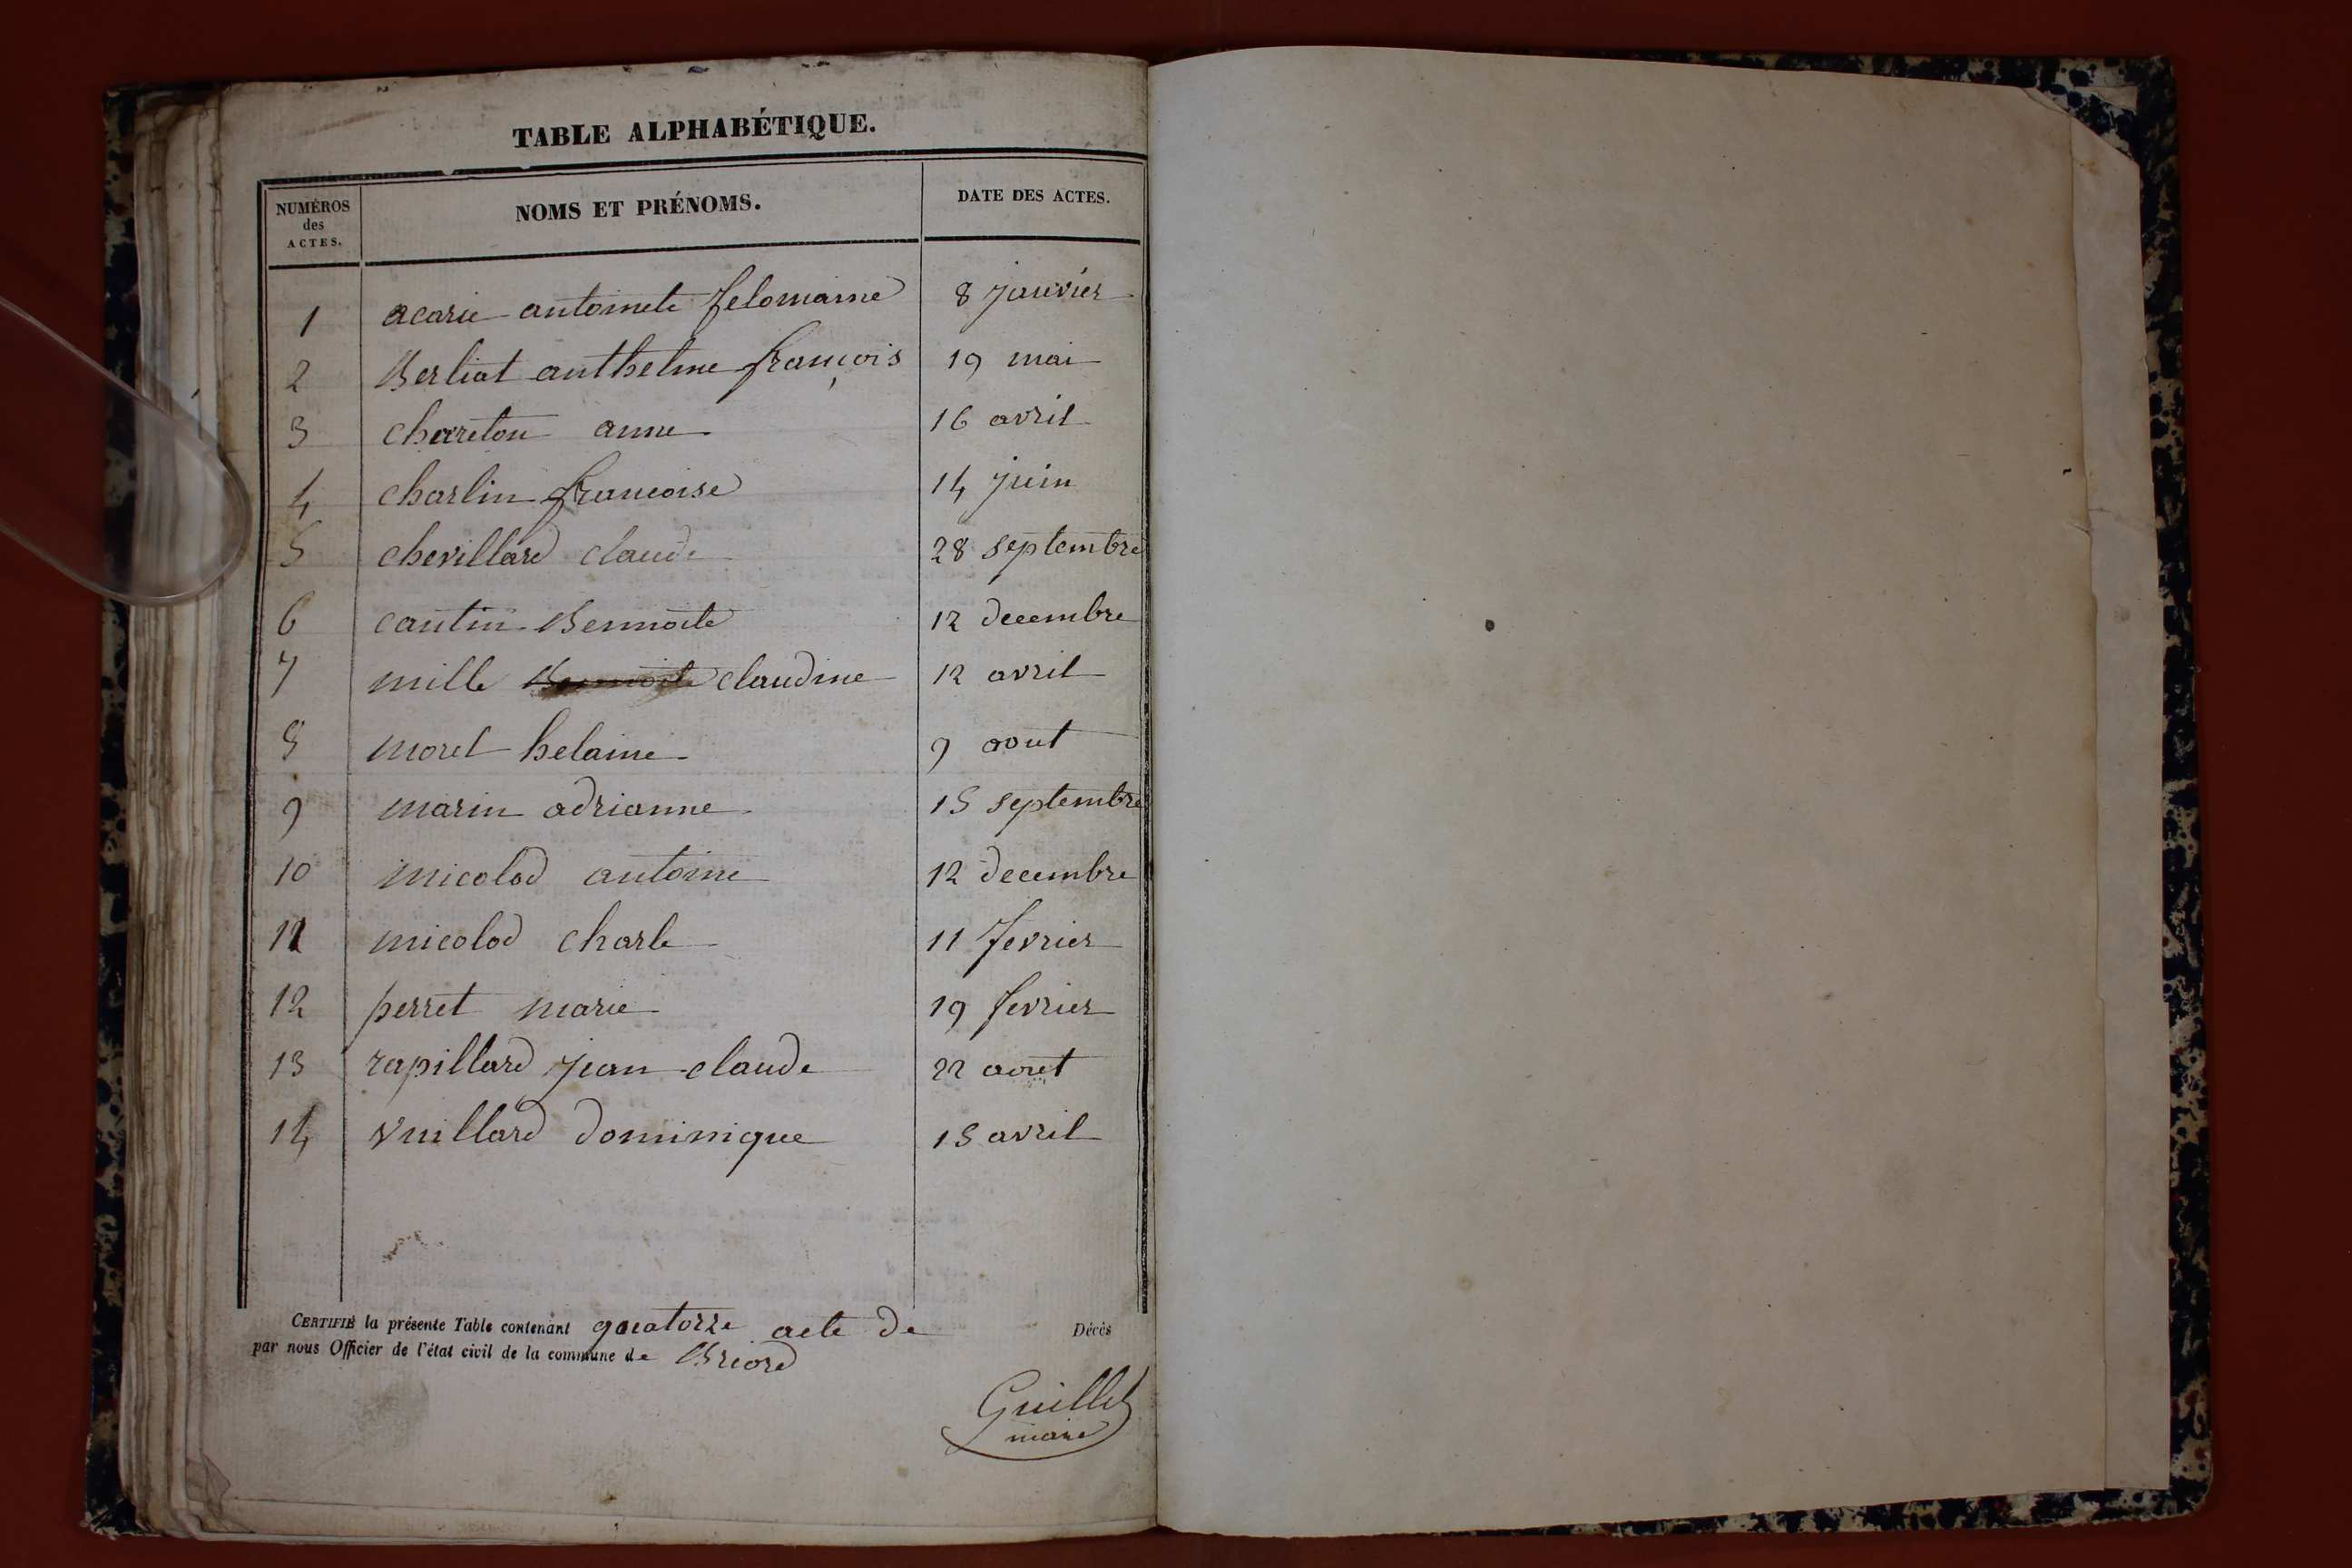 TABLE ALPHABÉTIQUE.
NUMÉROS des ACTES. NOMS ET PRÉNOMS. DATE DES ACTES.
1 acarie antoinete felomaine 8 janvier
2 Berliat anthelme françois 19 mai
3 charreton anne 16 avril
4 charlin francoise 14 juin
5 chevillard claude 28 septembre
6 cantin Bennoite 12 decembre
7 mille Bennoite claudine 12 avril
8 morel helaine 9 aout
9 marin adrianne 15 septembre
10 micolod antoine 12 decembre
11 micolod charle 11 fevrier
12 perret marie 19 fevrier
13 rapillard jean claude 22 aout
14 vuillard dominique 15 avril
CERTIFIÉ la présente Table contenant quatorze acte de Décès
par nous Officier de l'état civil de la commune de Briord
Guillet
maire